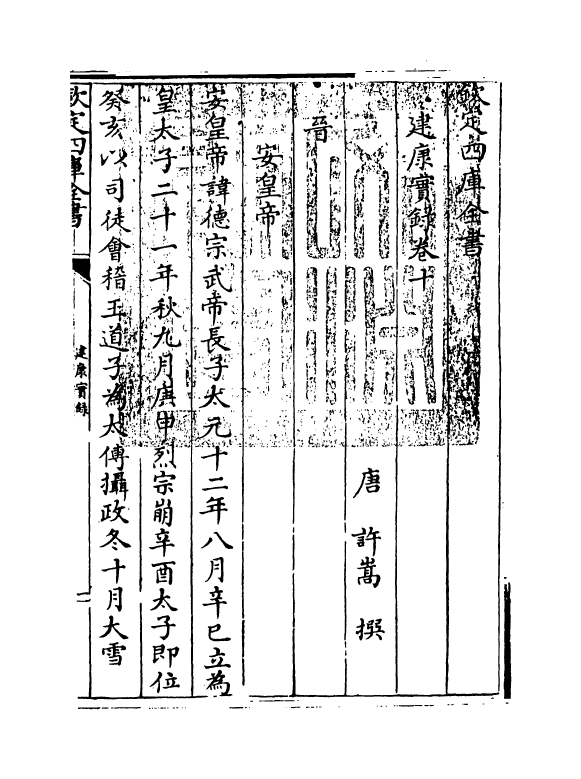 欽定四庫全書
建康實錄卷十
唐 許嵩 撰
晉
安皇帝
安皇帝諱德宗武帝長子太元十二年八月辛巳立為
皇太子二十一年秋九月庚申烈宗崩辛酉太子即位
癸亥以司徒會稽王道子為太傅攝政冬十月大雪
欽定四庫全書
建康實錄